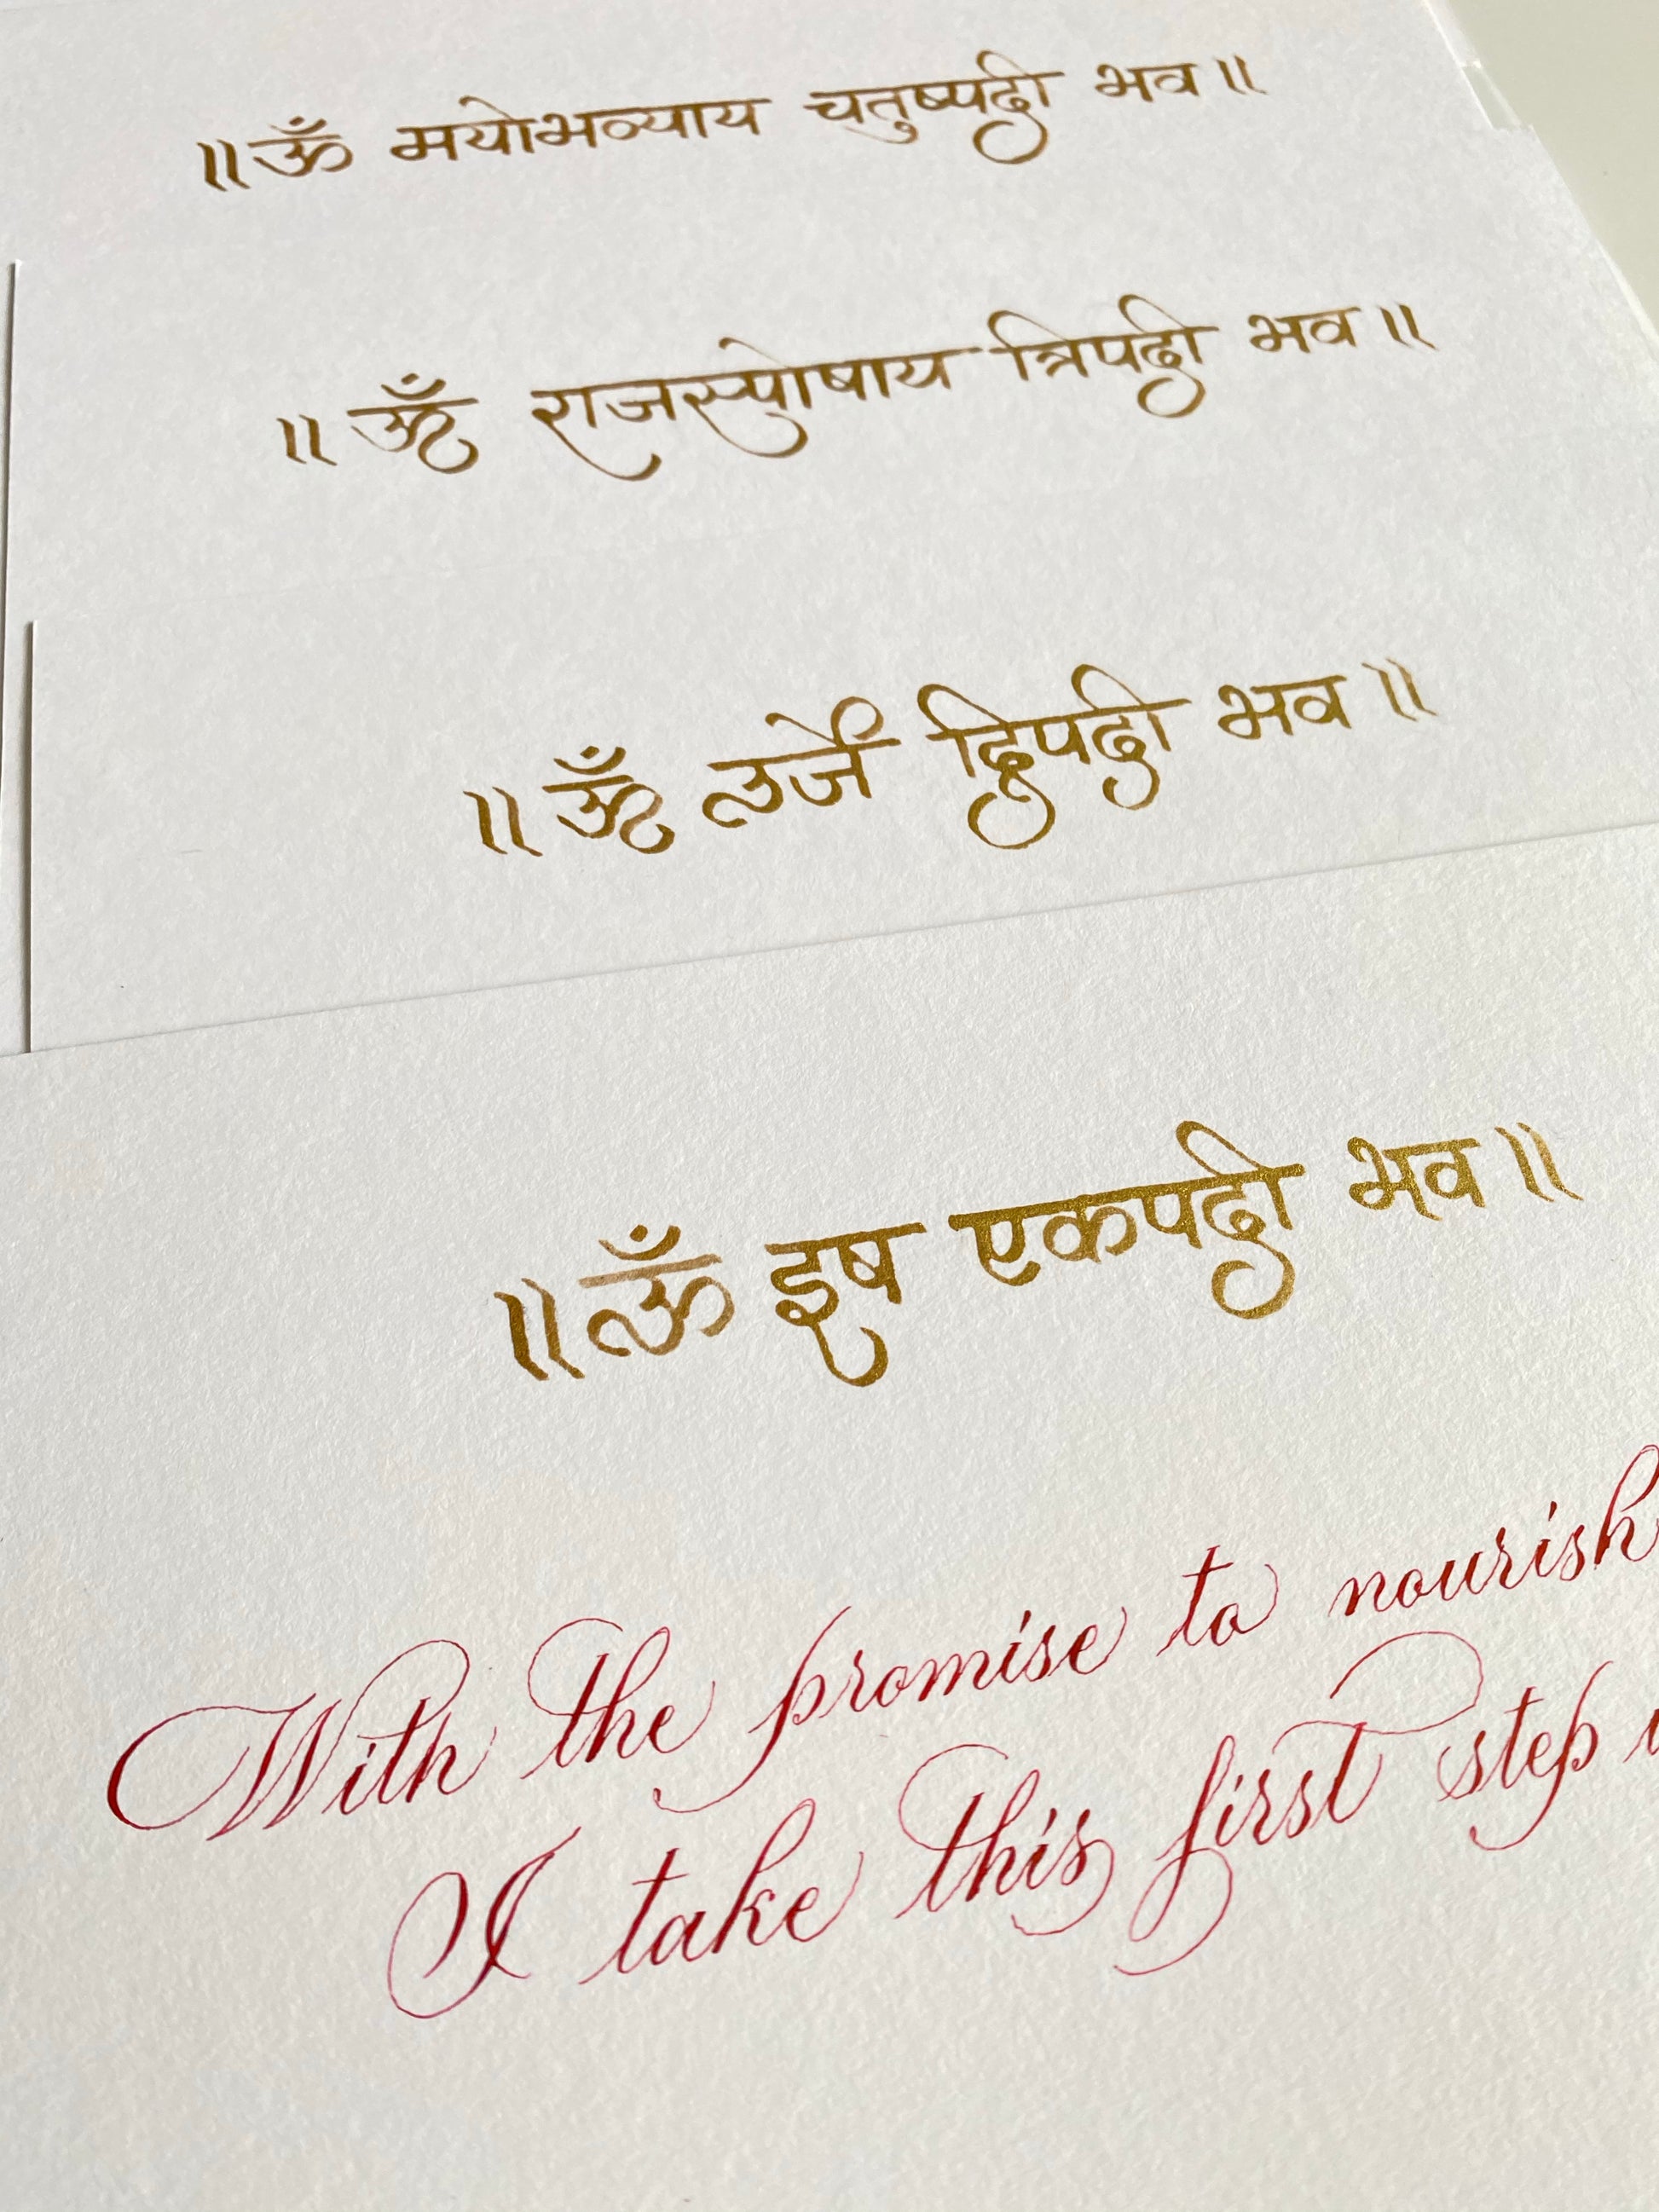 ॥ ॐ मयोभव्याय चतुष्पदी भव ॥
॥ ॐ राजस्पोषाय त्रिपदी भव ॥
॥ ॐ ऊर्जे द्विपदी भव ॥
॥ ॐ इष एकपदी भव ॥
With the promise to nourish
I take this first step